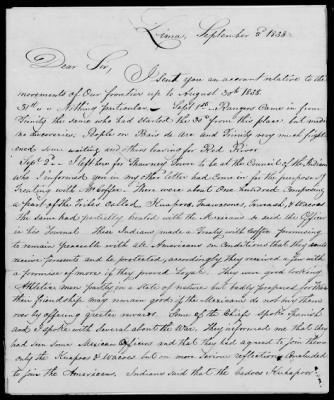 Lima, September 8 1838
Dear Sir, I send you an account relative to the
movements of Our frontier up to August 30th 1838.
31st " " Nothing particular — Sept 1st — Rangers Came in from
Trinity the same who had started the 30th from this place. but made
no discoveries. People on Bois de Arc and Trinity very much fright
ened some waiting and others leaving for Red River
Sept 2d — I left here for Shawnee Town to be at the Council of the Indians
who I informed you in my other letter had Came in for the purpose of
Treating with Mr Coffee. There were about One hundred Composing
a part of the Tribes Called Keachies, Towaconies, & Wacoes
The same had partially treated with the Mexicans as said the Officer
in his Journal. These Indians made a Treaty with Coffee promising
to remain peaceable with all Americans on Conditions that they
receive presents and be protected, accordingly they received a few with
a promise of more if they proved Loyal. They were good looking
Athletic men partly in a state of nature but badly prepared for War
their friendship may remain good if the Mexicans do not buy them
over by offering greater rewards. Some of the Chiefs Spoke Spanish
and I spoke with Several about the War. They informed me that they
had seen some Mexican Officers and that they had agreed to Join them
only the & Wacoes but on more Serious reflection Concluded
to Join the Americans. Indians said that the Kickapoo